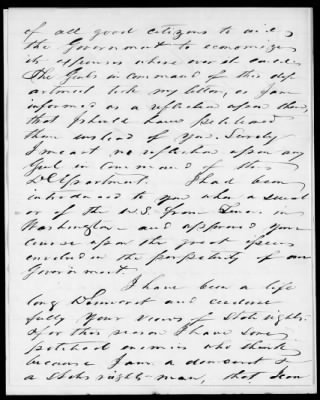 of all good citizens to aid
the Government to economize
its expenses where ever it could
The Genls in command of this dep
artment took my letter, as I am
informed as a reflection upon them,
that I should have petitioned
them instead of you. Surely
I meant no reflection upon any
Genl in command of this
Department. I had been
introduced to you when a senat
or of the U.S. from Tenn in
Washington and approved your
course upon the great
involved in the perpetuity of our
Government.
I have been a life
long Democrat and endorse
fully your views of State rights.
& for this reason I have some
enemies who think
because I am a democrat &
a State rights man, that I can